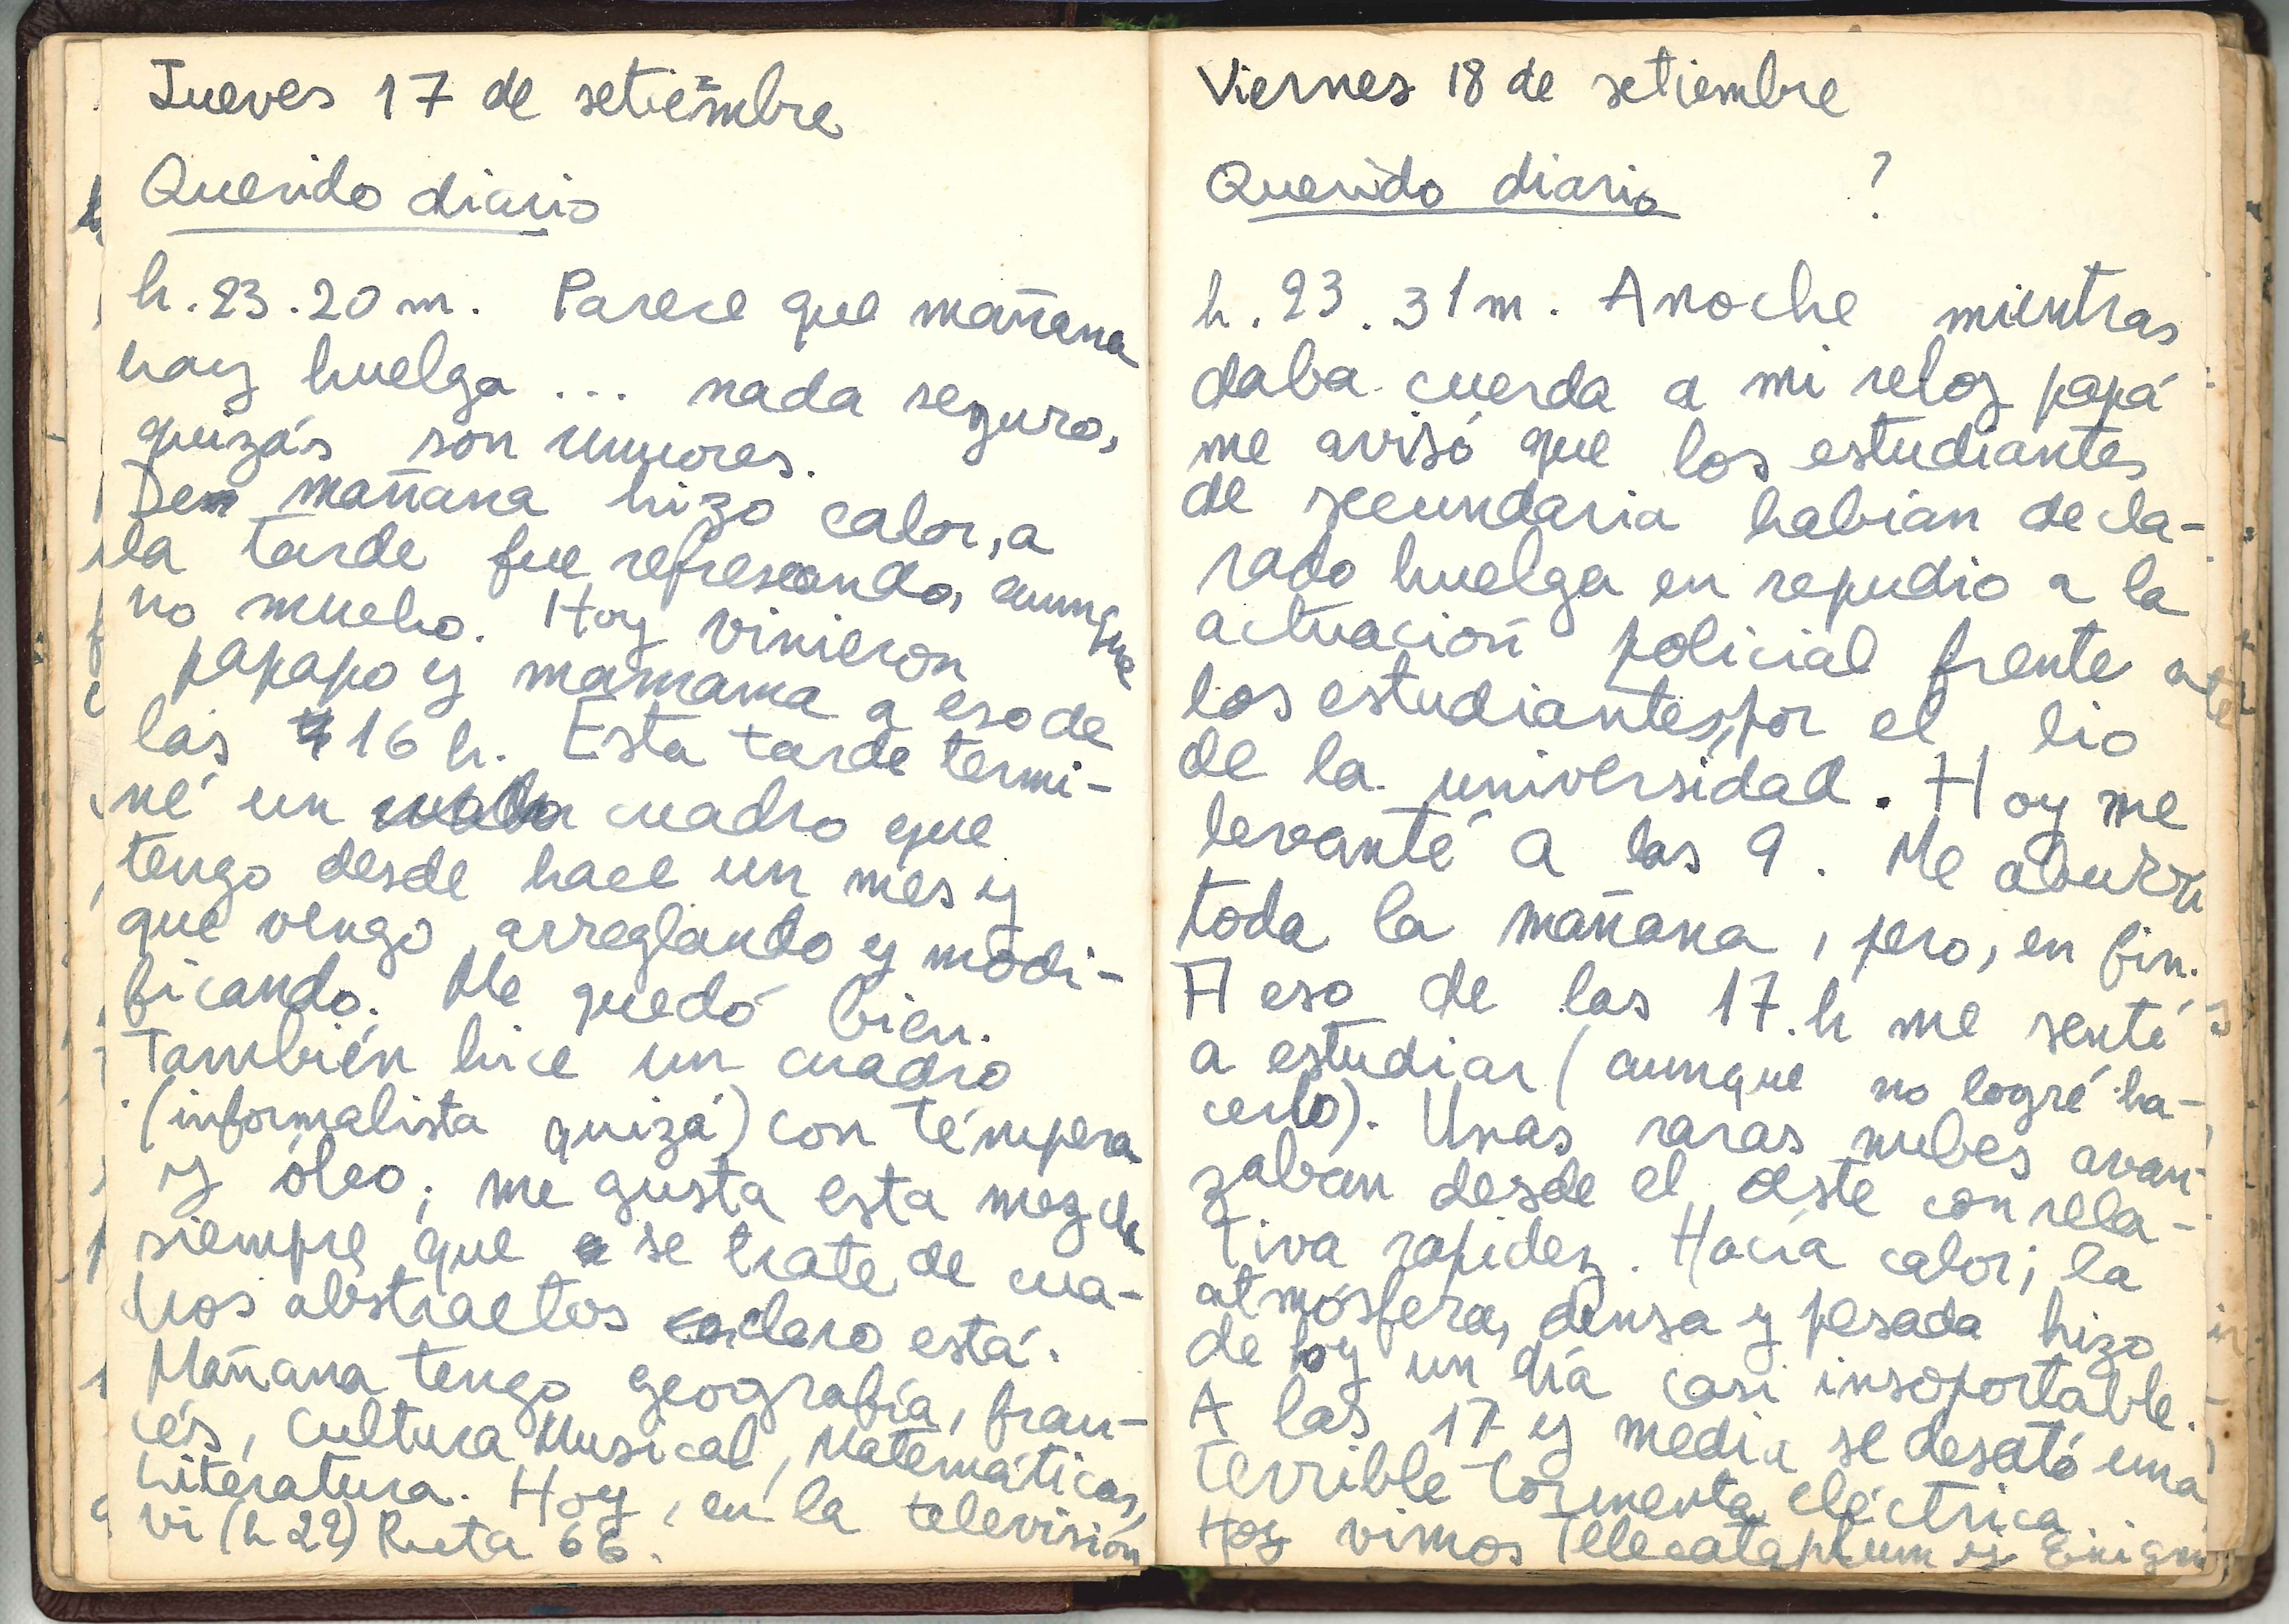 Jueves 17 de setiembre
Querido diario
h. 23.20 m. Parece que mañana
hay huelga ... nada seguro,
quizás son rumores.
De mañana hizo calor, a
la tarde fue refrescando, aunque
no mucho. Hoy vinieron
papapo y mamama a eso de
las 16 h. Esta tarde termi-
né un cuadro que
tengo desde hace un mes y
que vengo arreglando y modi-
ficando. Me quedó bien.
También hice un cuadro
(informalista quizá) con témpera
y óleo; me gusta esta mezcla
siempre que se trate de cua-
dros abstractos claro está.
Mañana tengo geografía, fran-
cés, Cultura Musical, Matemáticas,
Literatura. Hoy, en la televisión
vi (h 22) Ruta 66.
Viernes 18 de setiembre
Querido diario ?
h. 23.31 m. Anoche mientras
daba cuerda a mi reloj papá
me avisó que los estudiantes
de secundaria habían decla-
rado huelga en repudio a la
actuación policial frente
los estudiantes, por el lio
de la universidad. Hoy me
levanté a las 9. Me aburrí
toda la mañana, pero, en fin.
A eso de las 17.h me senté
a estudiar (aunque no logré ha-
cerlo). Unas raras nubes avan-
zaban desde el oeste con rela-
tiva rapidez. Hacía calor; la
atmósfera, densa y pesada hizo
de hoy un día casi insoportable.
A las 17 y media se desató una
terrible tormenta eléctrica.
Hoy vimos Telecataplum y